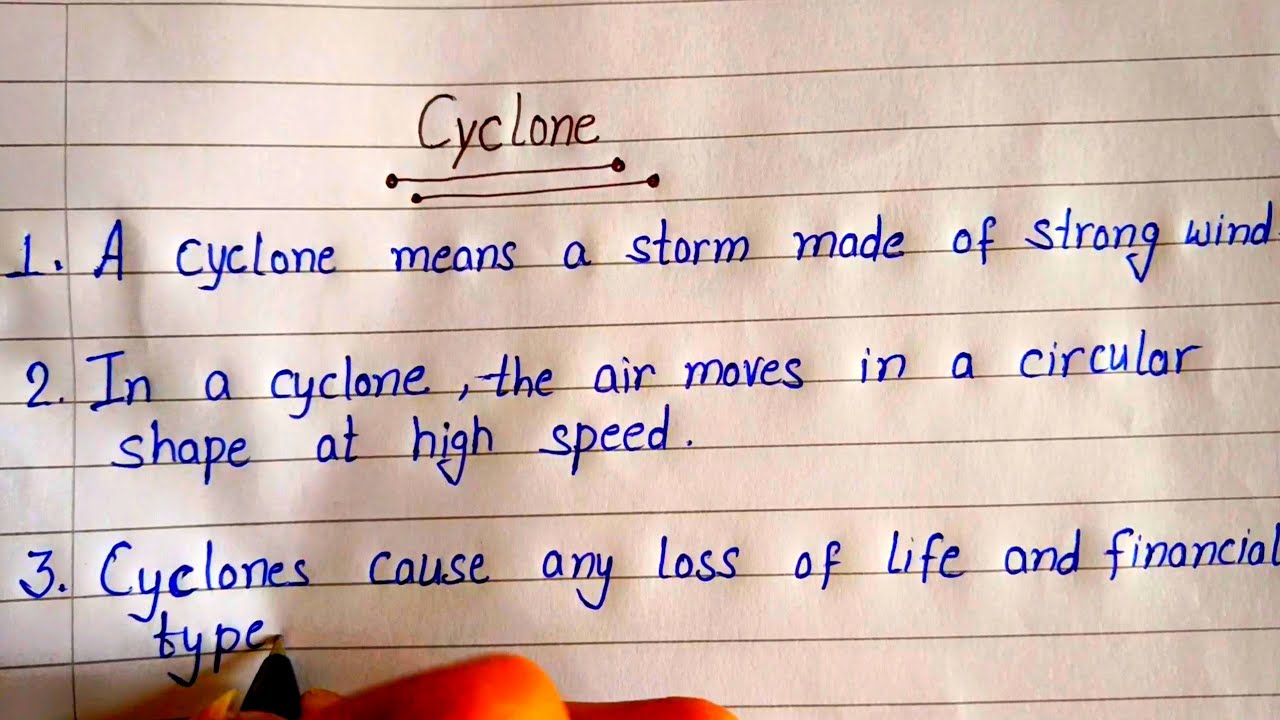 Cyclone
1. A cyclone means a storm made of strong wind.
2. In a cyclone, the air moves in a circular
shape at high speed.
3. Cyclones cause any loss of life and financial
type